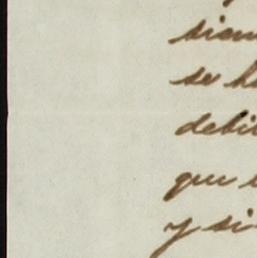 siem
se ha
debi
que
y si